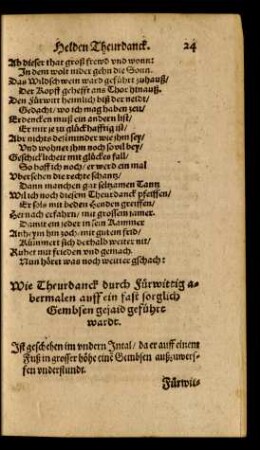 Helden Theurdanck. 24
Ab dieser that groß frewd vnd wonn:
In dem wolt nider gehn die Sonn.
Das Wildschwein ward geführt zuhauß/
Der Kopff gehefft ans Thor hinauß.
Den Fürwitt heimlich biß der neidt/
Gedacht/ wo ich mag haben zeit/
Erdencken muß ein andern list/
Er mir je zu glückhafftig ist/
Abr nichts destminder wie jhm sey/
Vnd wohnet jhm noch sovil bey/
Geschicklicheit mit glückes fall/
So hoff ich noch/ er werd ein mal
Vbersehen die rechte schantz/
Dann manchen gar seltzamen Tantz
Wil ich noch diesem Theurdanck pfeiffen/
Er sols mit beden Henden greiffen/
Hernach erfahrn/ mit grossem jamer.
Damit ein jeder in sein Kammer
Anheyn hin zoch/ mit gutem frid/
Kümmert sich derhalb weiter nit/
Ruhet mit frieden vnd gemach.
Nun höret was noch weiter gschach:
Wie Theurdanck durch Fürwittig a-
bermalen auff ein fast sorglich
Gembsen gejaid geführt
wardt.
Ist geschehen im vndern Intal/ da er auff einem
Fuß in grosser höhe eine Gembsen außzuwerf-
fen vnderstundt.
Fürwit-